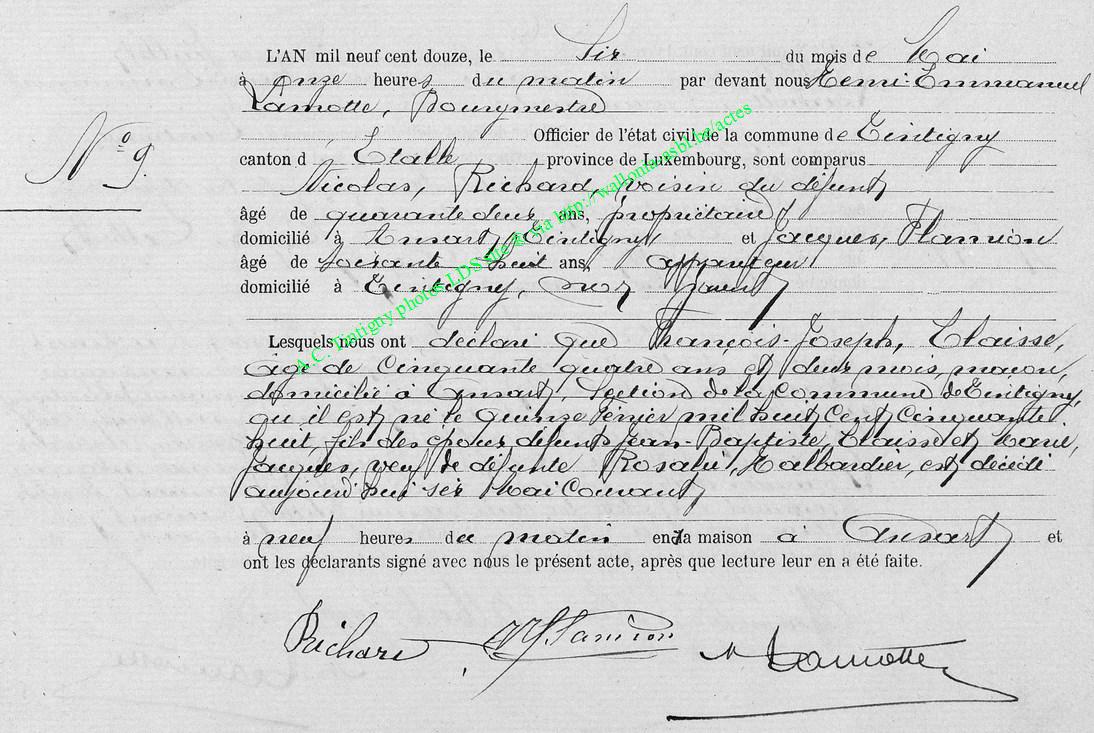 L'AN mil neuf cent douze, le Six du mois de Mai
à Onze heures du matin par devant nous Henri-Emmanuel
Lamotte, Bourgmestre
Officier de l'état civil de la commune de Tintigny
N° 9.
canton d' Etalle province de Luxembourg, sont comparus
Nicolas, Richard, voisin du défunt
âgé de quarante deux ans, propriétaire
domicilié à Ansart, Tintigny et Jacques, Flamion
âgé de soixante huit ans, appariteur
domicilié à Tintigny, non parent
Lesquels nous ont déclaré que François-Joseph, Claisse,
âgé de Cinquante quatre ans et deux mois, maçon,
domicilié à Ansart, Section de la commune de Tintigny,
qu'il est né le quinze février mil huit cent cinquante
huit, fils des époux défunts Jean-Baptiste, Claisse et Marie,
Jacques, veuf de défunte Rosalie, Halbardier, est décédé
aujourd'hui six Mai Courant
à neuf heures du matin en la maison à Ansart et
ont les déclarants signé avec nous le présent acte, après que lecture leur en a été faite.
Richard Flamion Lamotte
A.C. Tintigny photos LDS site & via http://wallonia-asbl.be/actes